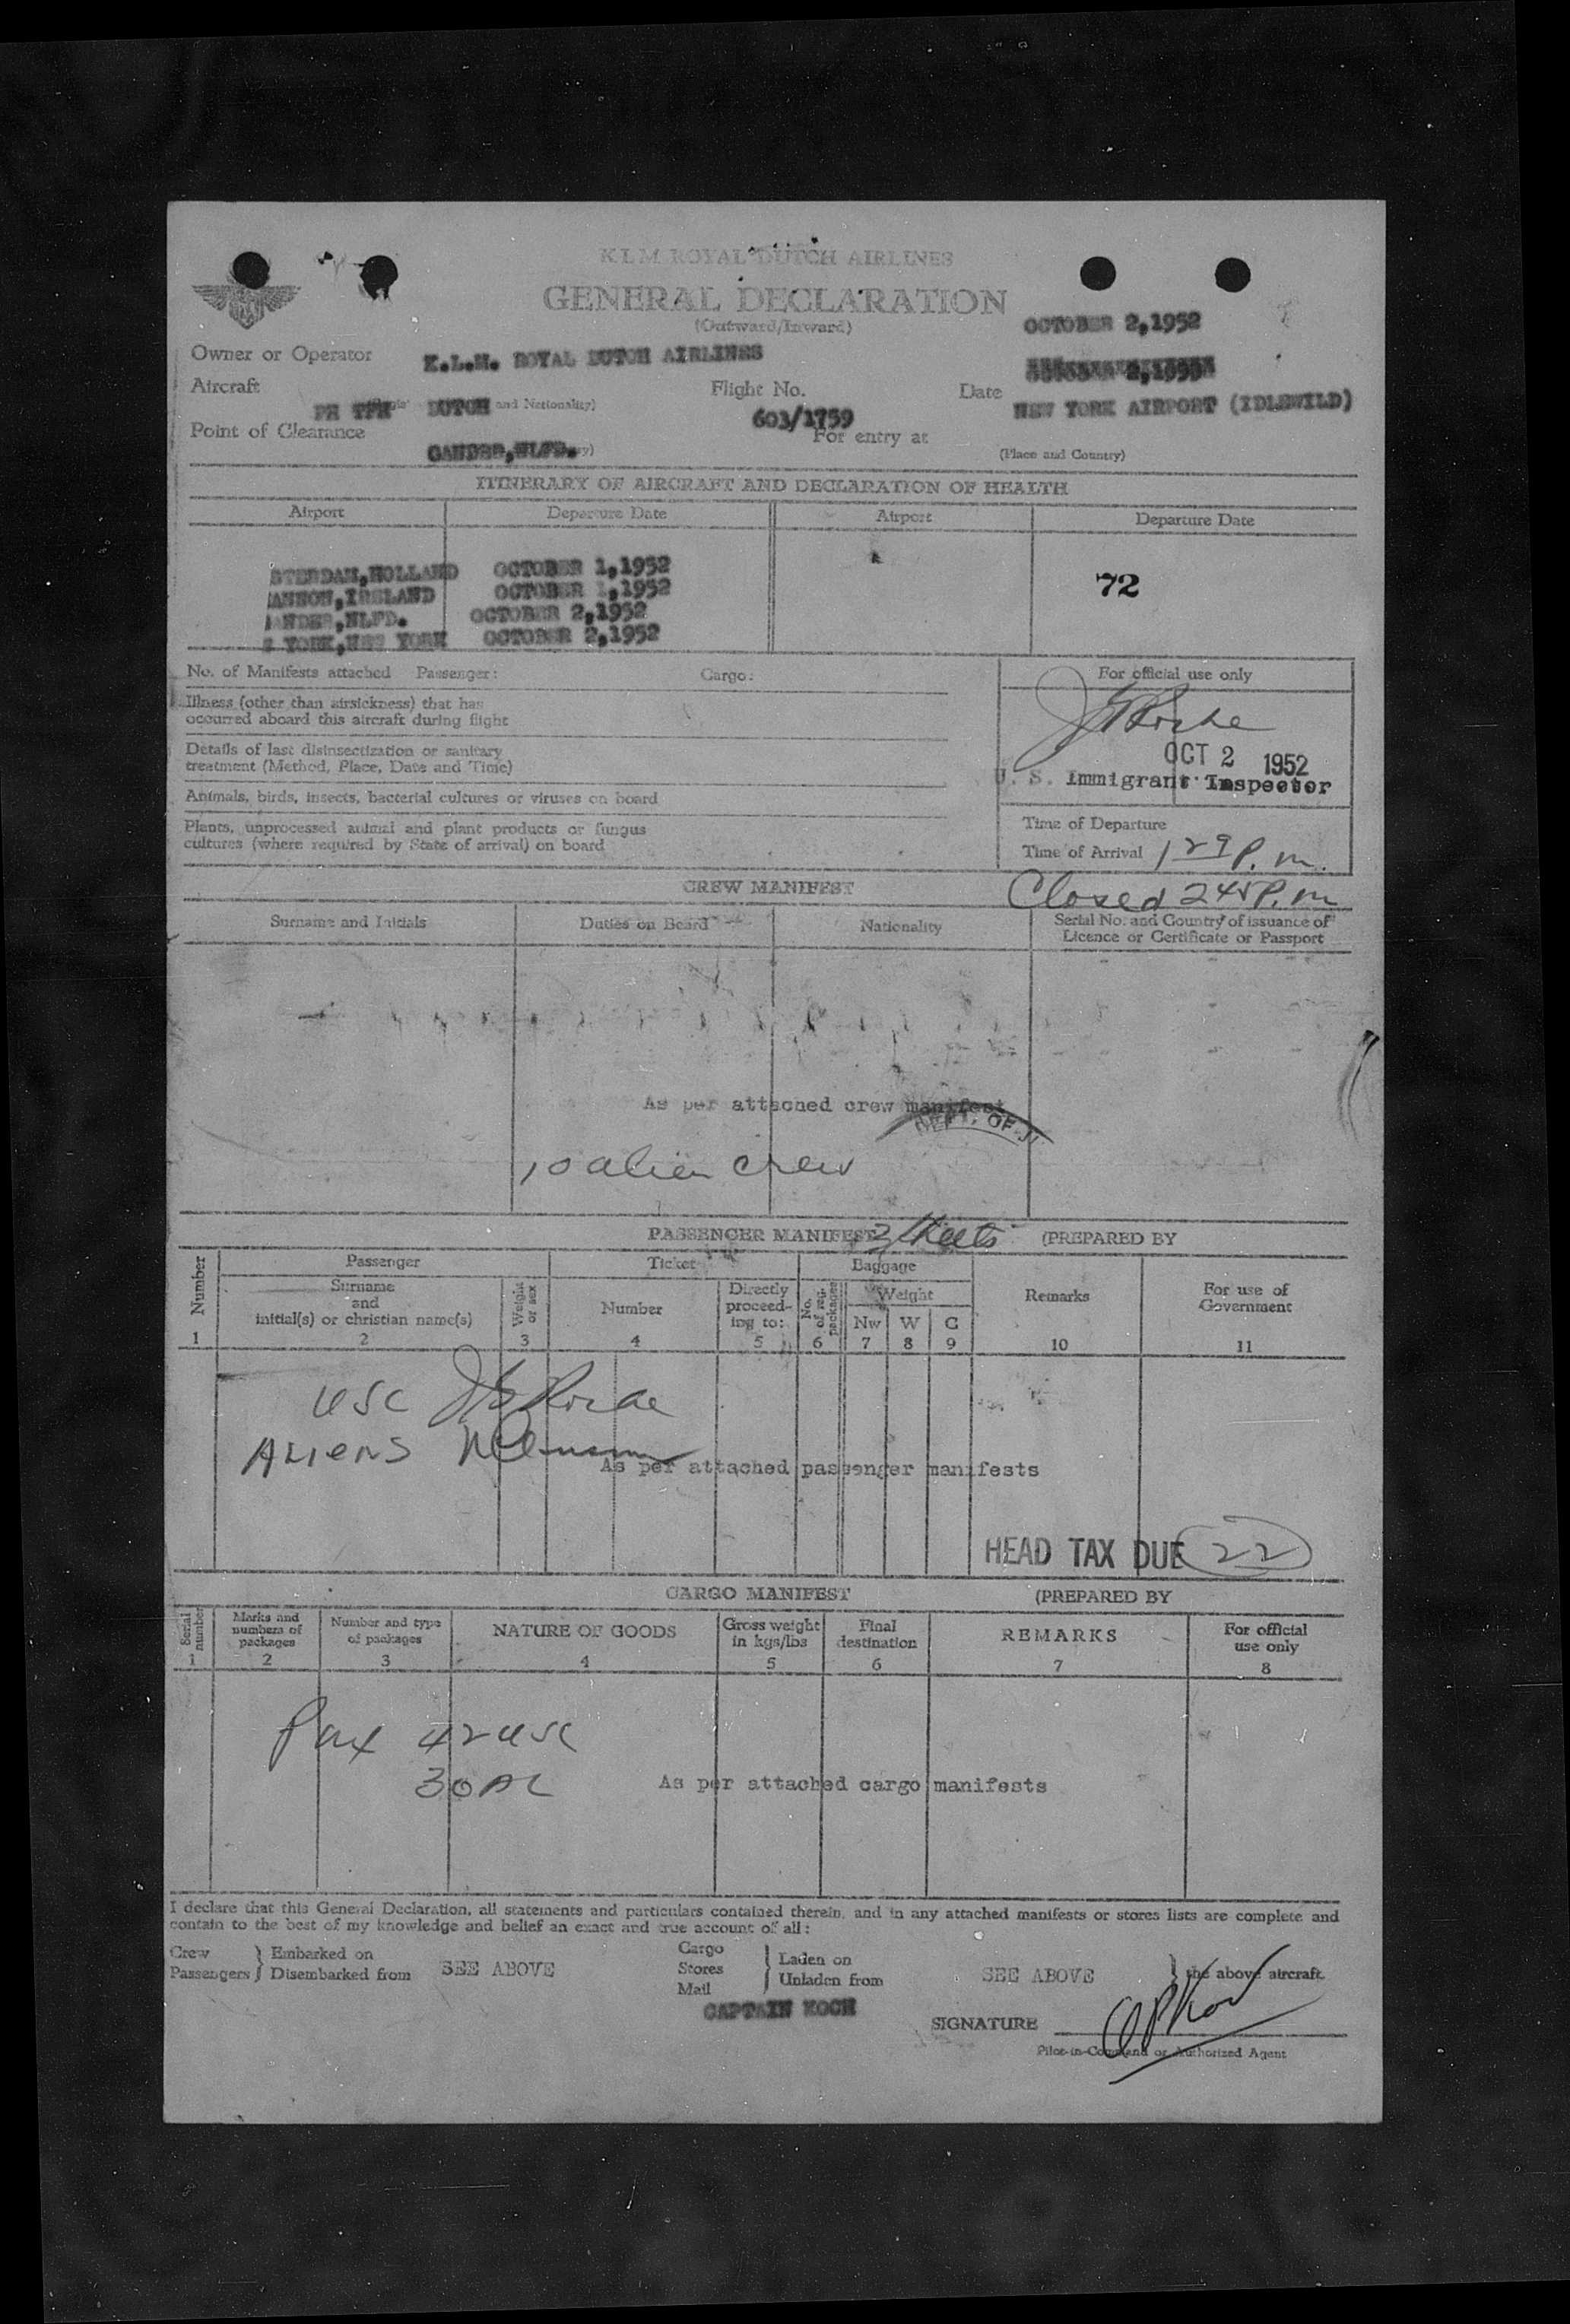 K.L.M. ROYAL DUTCH AIRLINES
GENERAL DECLARATION
(Outward/Inward)
OCTOBER 2,1952
Owner or Operator K.L.M. ROYAL DUTCH AIRLINES
Aircraft Flight No. Date
PH TFH DUTCH and Nationality) 603/1759 NEW YORK AIRPORT (IDLEWILD)
Point of Clearance For entry at
GANDER,NLFD. (Place and Country)
ITINERARY OF AIRCRAFT AND DECLARATION OF HEALTH
Airport Departure Date Airport Departure Date
STERDAM,HOLLAND OCTOBER 1,1952
ANNON,IRELAND OCTOBER 1,1952
72
ANDER,NLFD. OCTOBER 2,1952
YORK,NEW YORK OCTOBER 2,1952
No. of Manifests attached Passenger: Cargo:
For official use only
Illness (other than airsickness) that has
occurred aboard this aircraft during flight
Details of last disinsectization or sanitary
treatment (Method, Place, Date and Time)
OCT 2 1952
U. S. Immigrant Inspector
Animals, birds, insects, bacterial cultures or viruses on board
Plants, unprocessed animal and plant products or fungus
cultures (where required by State of arrival) on board
Time of Departure
Time of Arrival 1 29 P. m.
Closed 245 P. m
CREW MANIFEST
Surname and Initials Duties on Board Nationality Serial No. and Country of issuance of
Licence or Certificate or Passport
As per attached crew manifest
DEPT. OF J
10 alien crew
PASSENGER MANIFEST 3 sheets (PREPARED BY
Number Passenger Ticket Baggage Remarks For use of
Government
Surname
and
initial(s) or christian name(s) Weight
or sex Number Directly
proceed-
ing to: No.
of reg.
packages Weight
Nw W C
1 2 3 4 5 6 7 8 9 10 11
USC
ALIENS
As per attached passenger manifests
HEAD TAX DUE 22
CARGO MANIFEST (PREPARED BY
Serial
number Marks and
numbers of
packages Number and type
of packages NATURE OF GOODS Gross weight
in kgs/lbs Final
destination REMARKS For official
use only
1 2 3 4 5 6 7 8
Pax 42 usc
30 AL
As per attached cargo manifests
I declare that this General Declaration, all statements and particulars contained therein, and in any attached manifests or stores lists are complete and
contain to the best of my knowledge and belief an exact and true account of all:
Crew Embarked on
Passengers Disembarked from SEE ABOVE
Cargo
Stores
Mail
Laden on
Unladen from SEE ABOVE the above aircraft
CAPTAIN KOCH
SIGNATURE
Pilot-in-Command or Authorized Agent